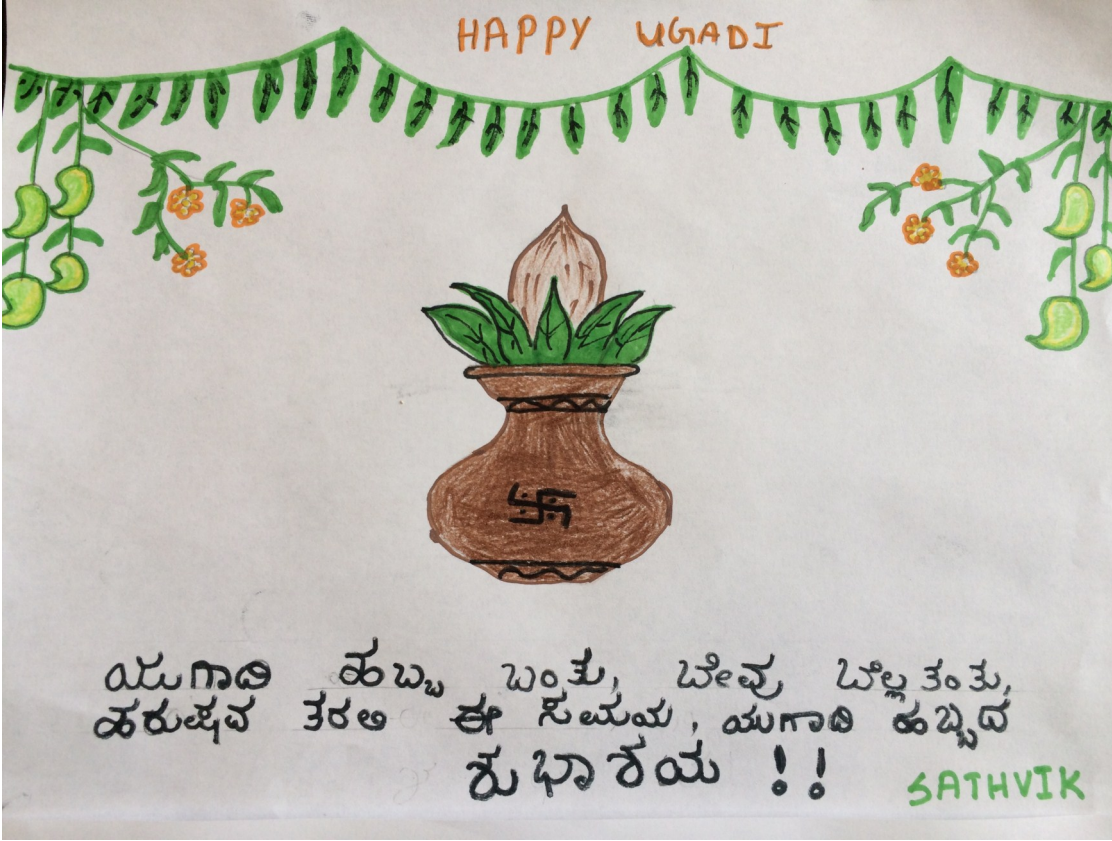 HAPPY UGADI
ಯುಗಾದಿ ಹಬ್ಬ ಬಂತು, ಬೇವು ಬೆಲ್ಲ ತಂತು,
ಹರುಷವ ತರಲಿ ಈ ಸಮಯ, ಯುಗಾದಿ ಹಬ್ಬದ
ಶುಭಾಶಯ !!
SATHVIK